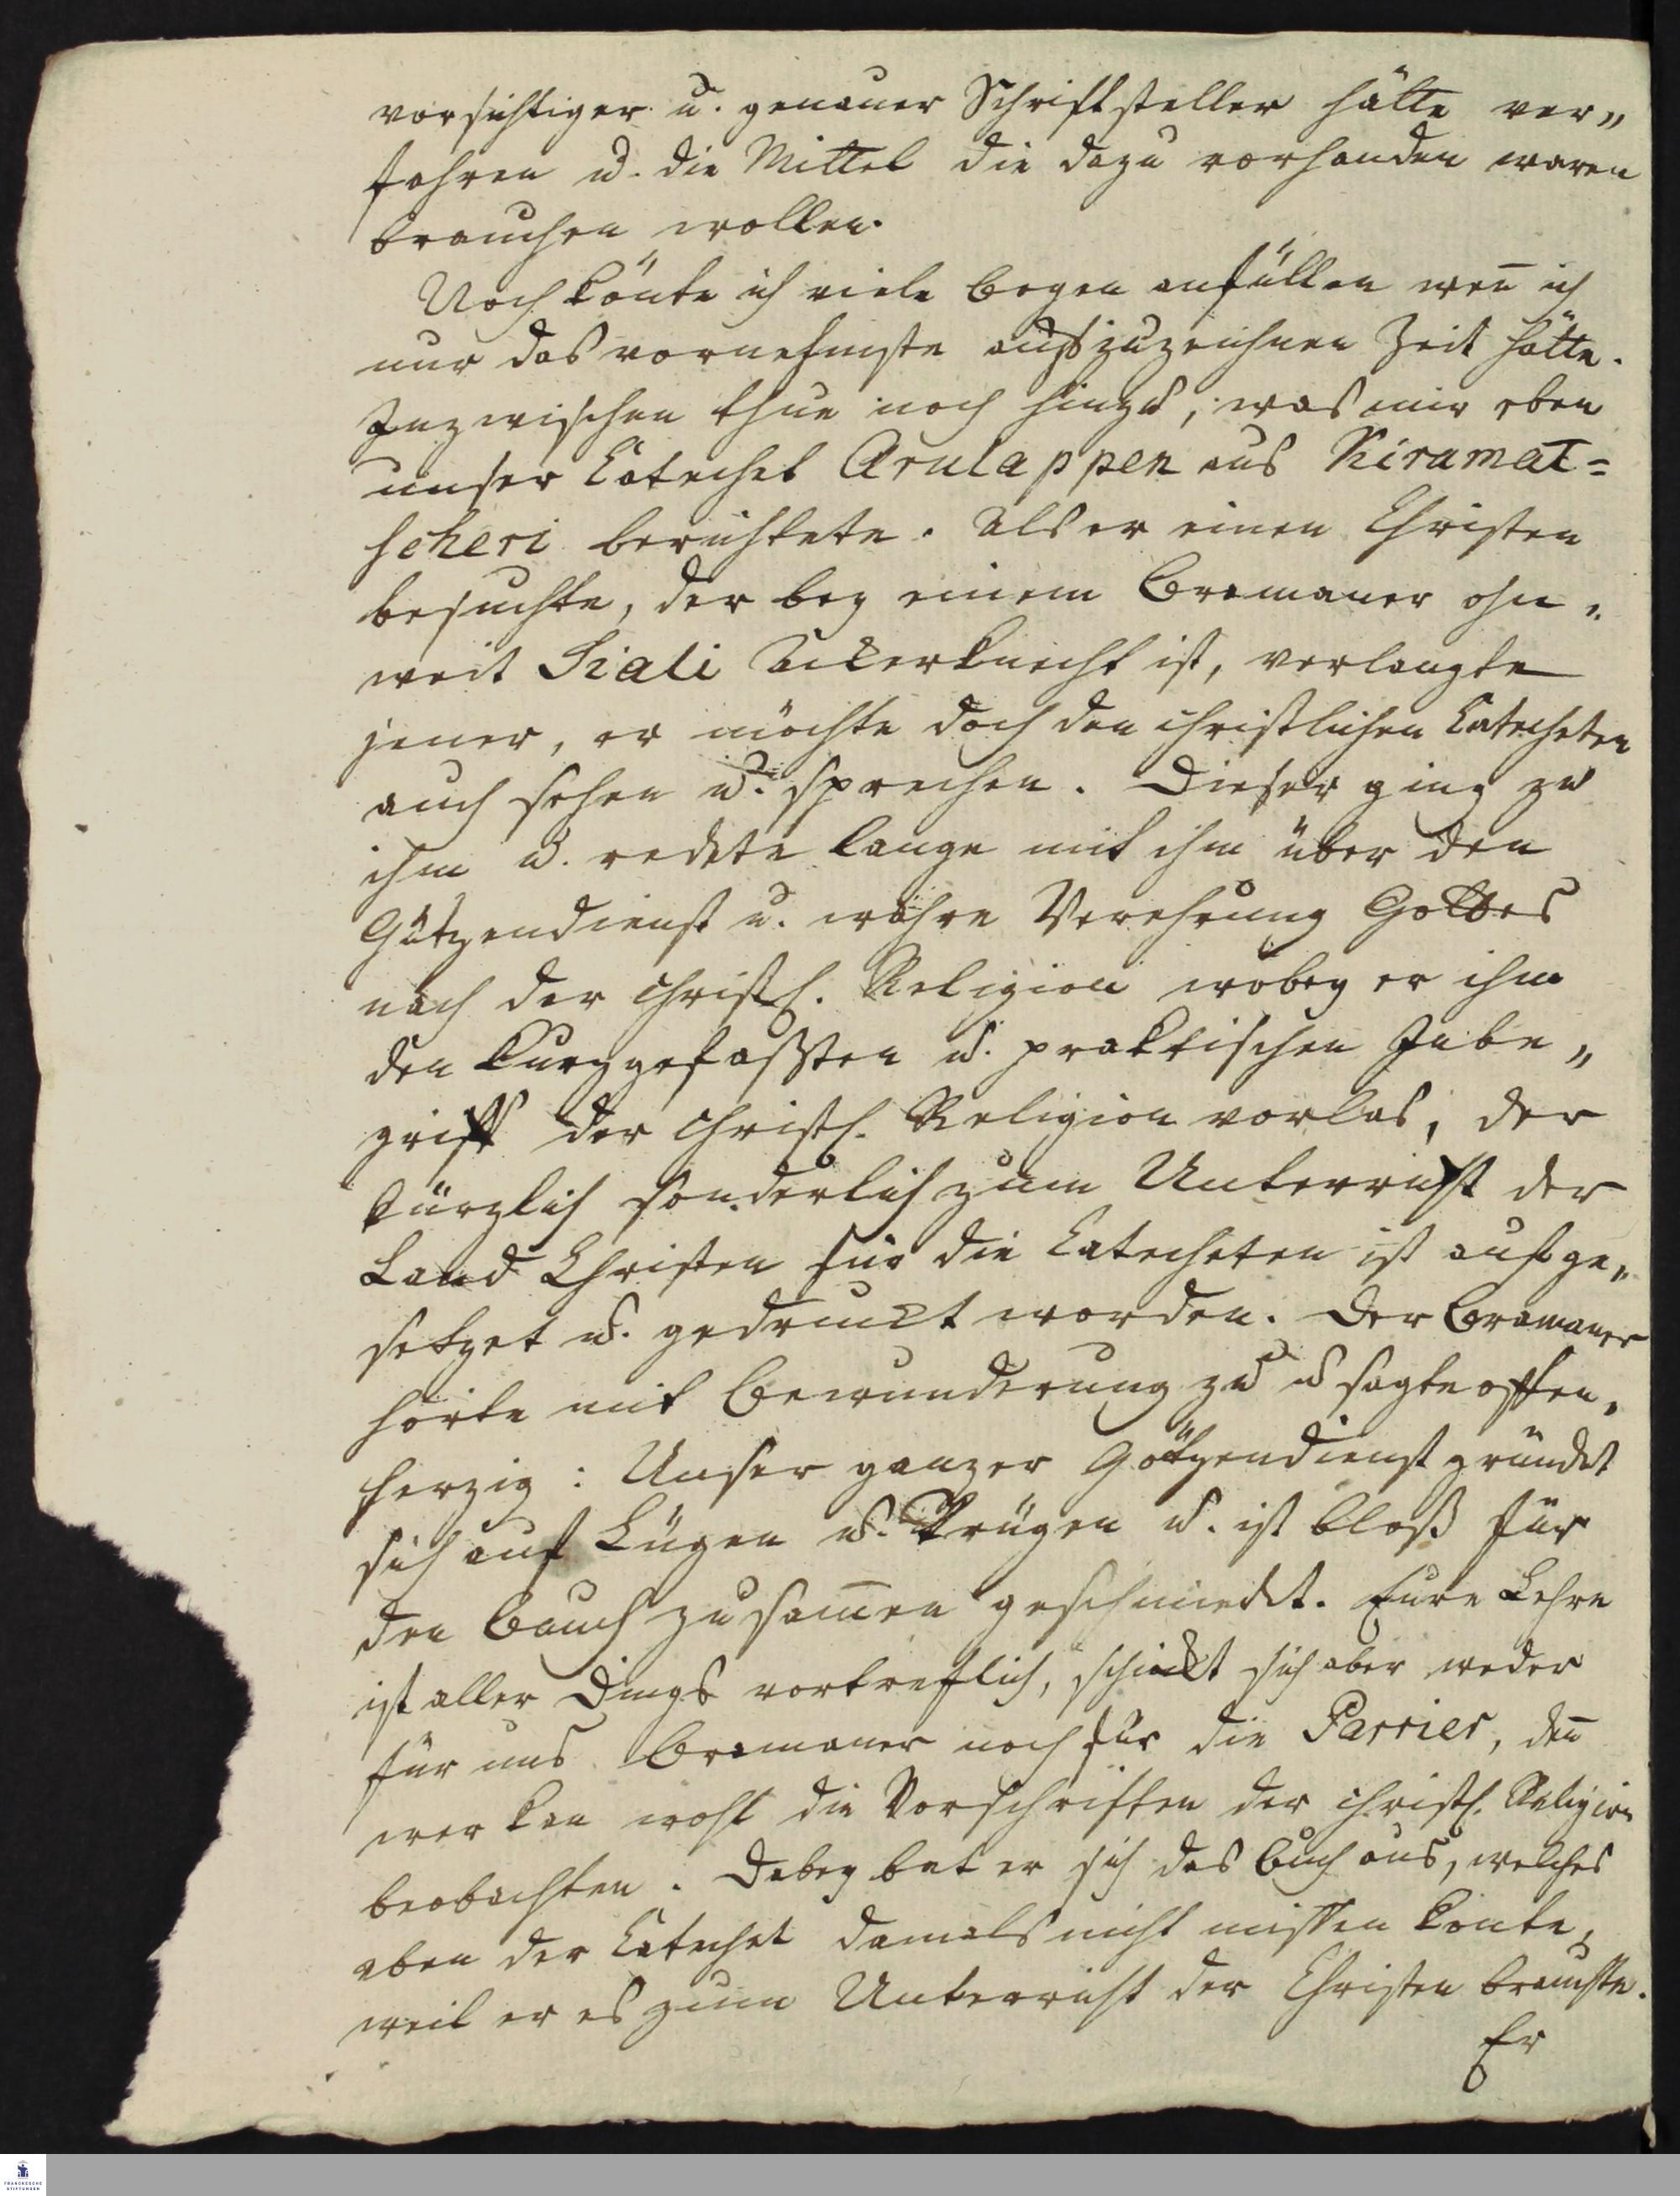 vorsichtiger u. genauer Schriftsteller hätte ver„
fahren u. die Mittel die dazu vorhanden waren
brauchen wollen.
Noch könte ich viele Bogen anfüllen weñ ich
nur das vornehmste auszuzeichnen Zeit hätte.
Inzwischen thue noch hinzu, was mir eben
unser Catechet Arulappen aus Kiramat=
scheri berichtete. Als er einen Christen
besuchte, der bey einem Bramaner ohn„
weit Siali Ackerknecht ist, verlangte
jener, er möchte doch den christlichen Catecheten
auch sehen u. sprechen. Dieser ging zu
ihm u. redete lange mit ihm über den
Götzendienst u. wahre Verehrung Gottes
nach der christl. Religion wobey er ihm
den kurzgefaßten u. praktischen Inbe„
griff der christl. Religion vorlas, der
kürzlich sonderlich zum Unterricht der
Land Christen für die Catecheten ist aufge„
setzet u. gedruckt worden. Der Bramaner
hörte mit Bewunderung zu u sagte offen„
herzig: Unser ganzer Götzendienst gründet
sich auf Lügen u. Trügen u. ist bloß für
den Bauch zusam̄en geschmiedet. Eure Lehre
ist aller Dings vortreflich, schickt sich aber weder
für uns Bramaner noch für die Parrier, deñ
wer kan wohl die Vorschriften der christl. Religion
beobachten. Dabey bat er sich das Buch aus, welches
aber der Catechet damals nicht missen konte,
weil er es zum Unterricht der Christen brauchte.
Er
FRANCKESCHE
STIFTUNGEN